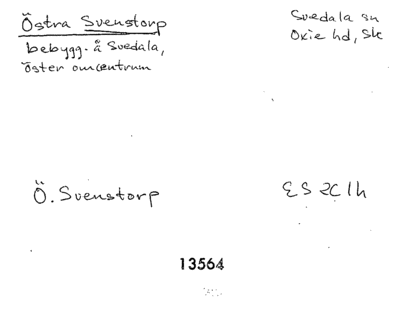 Östra Svenstorp
bebygg. å Svedala,
öster om centrum
Svedala sn
Oxie hd, Sk
Ö. Svenstorp
ES 2C 1h
13564